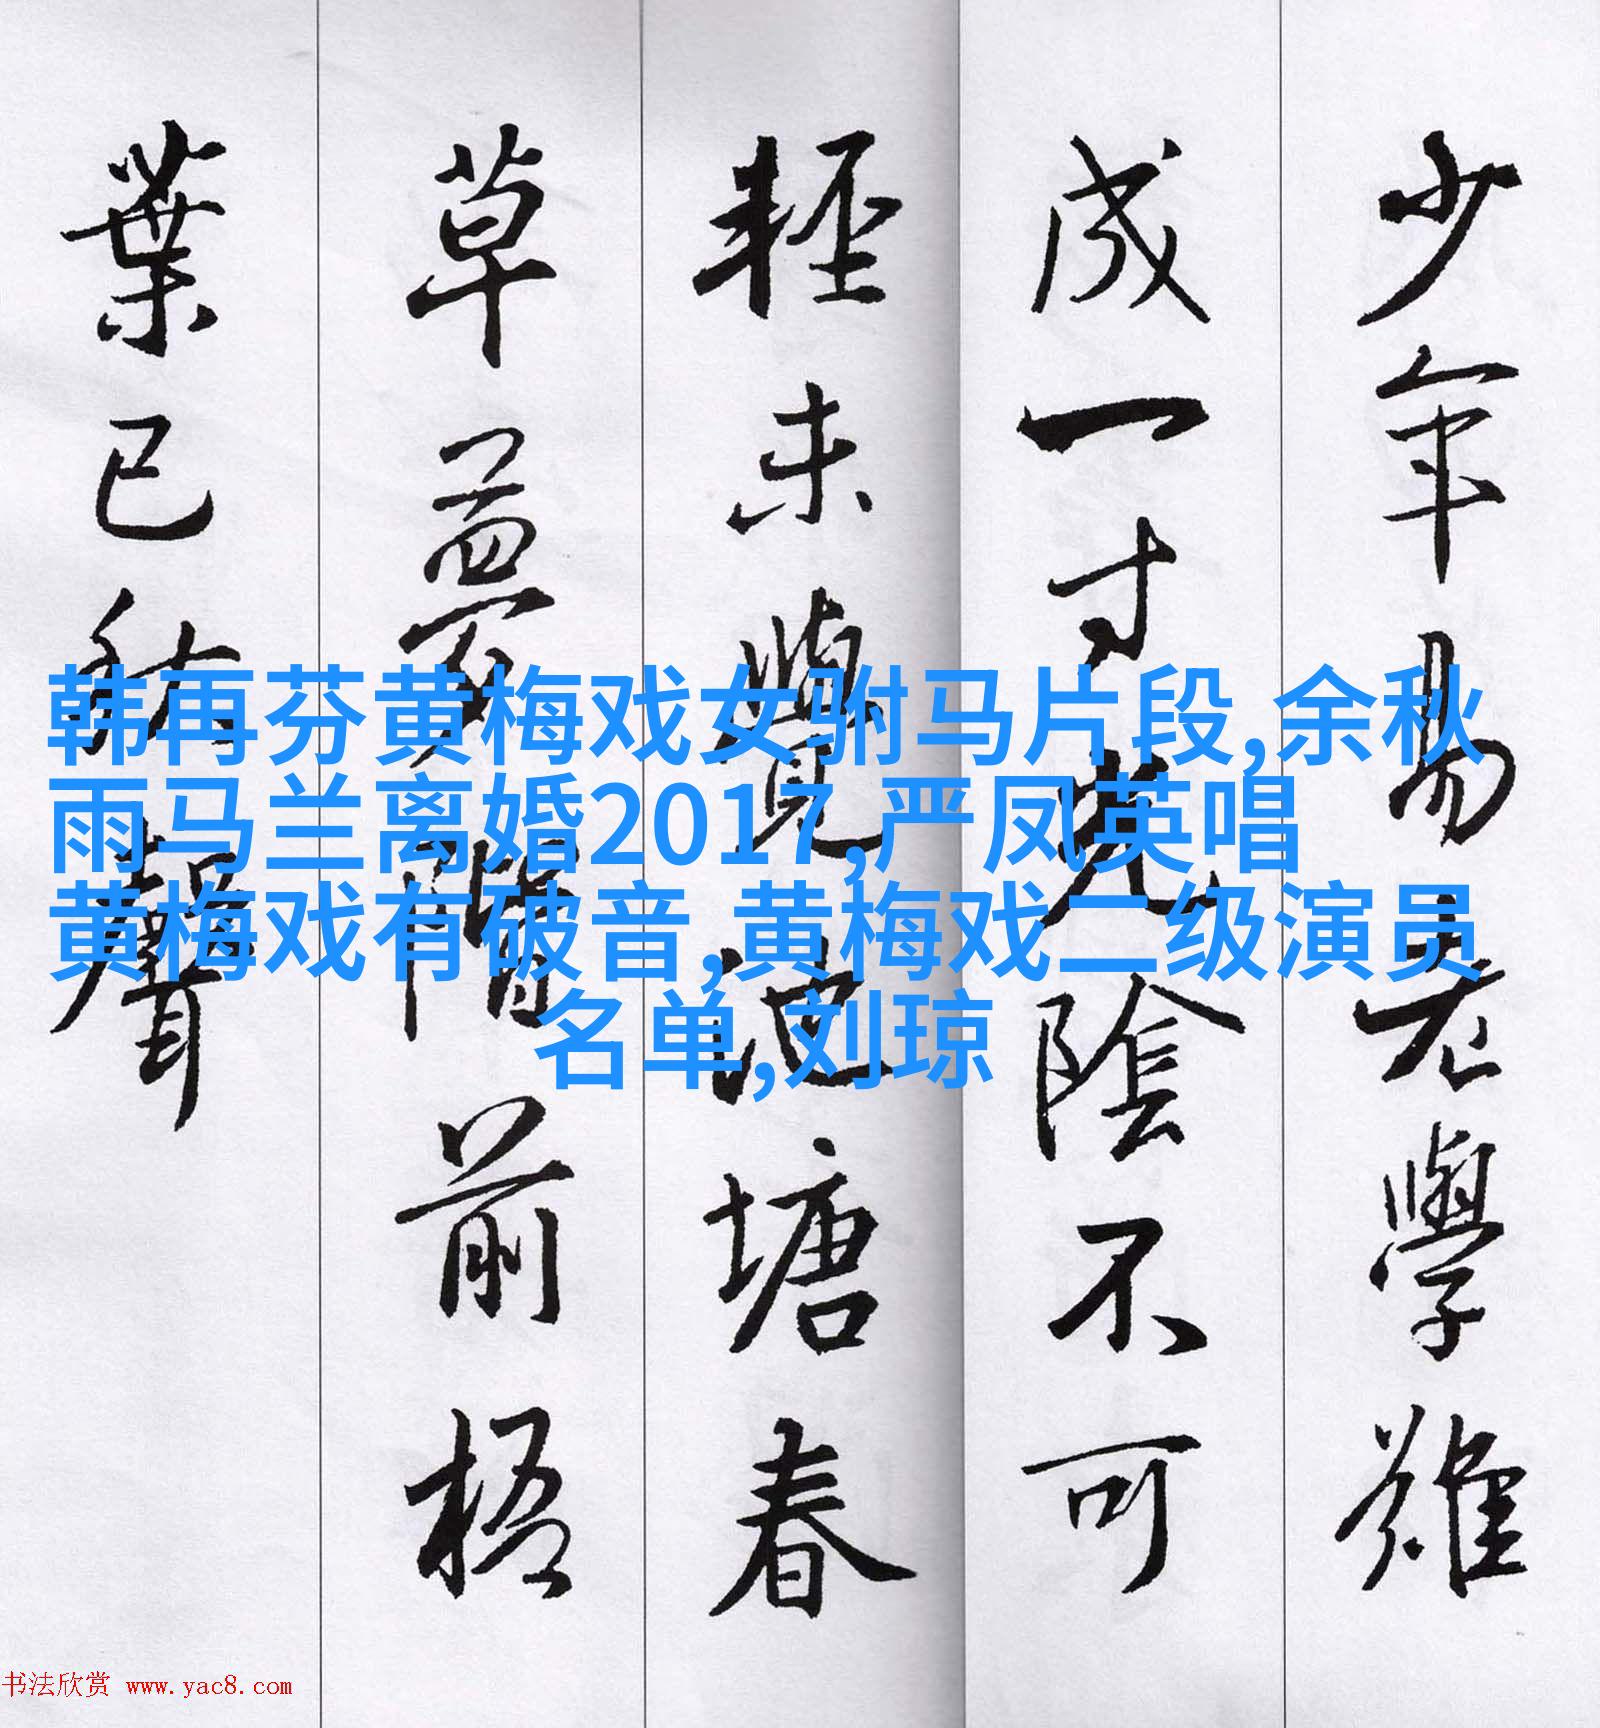 少年易老學難
成一寸光陰不可
輕未覺池塘春
草夢階前梧
葉已秋聲
韩再芬黄梅戏女驸马片段,余秋
雨马兰离婚2017,严凤英唱
黄梅戏有破音,黄梅戏二级演员
名单,刘琼
书法欣赏 www.yac8.com